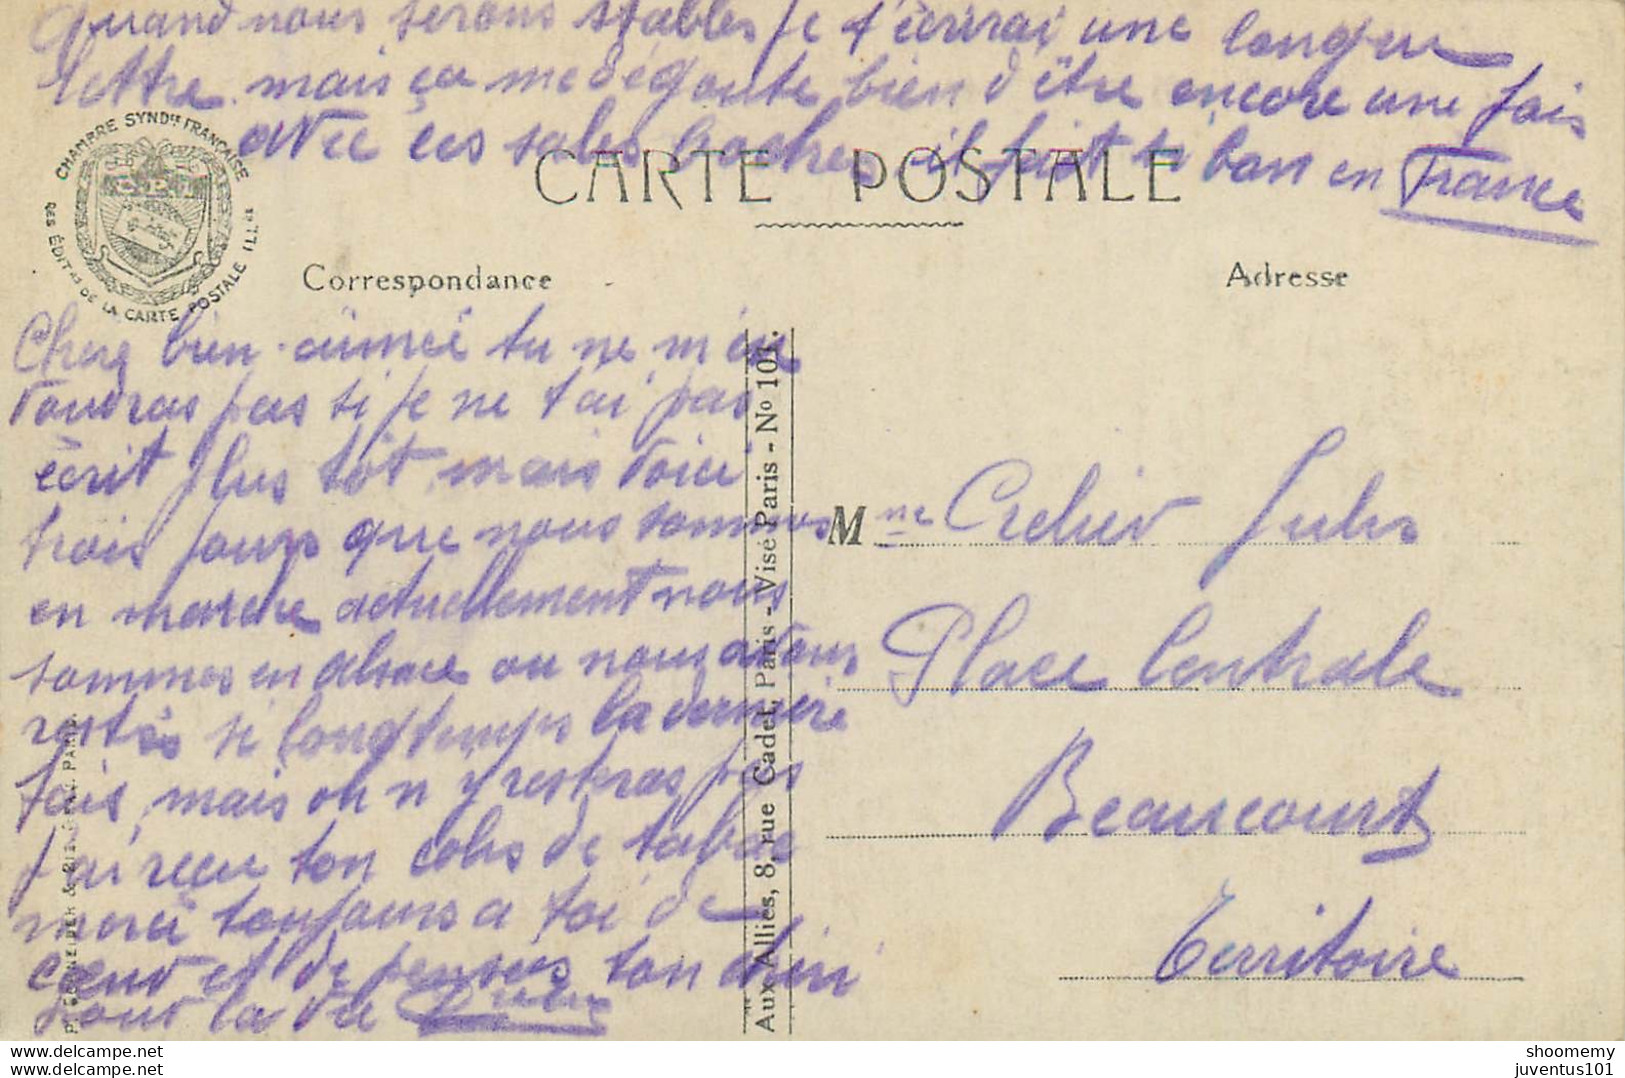 Quand nous serons stables je t'écrirai une longue
lettre mais ça me dégoute bien d'être encore une fois
avec ces sales boches il fait si bon en France
CHAMBRE SYND^le FRANÇAISE
C.P.I
DES ÉDIT^rs DE LA CARTE POSTALE ILL^ée
CARTE POSTALE
Correspondance
Adresse
Chere bien-aimée tu ne m'en
voudras pas si je ne t'ai pas
écrit plus tôt mais voici
trois jours que nous sommes
en marche actuellement nous
sommes en alsace ou nous avons
restés si longtemps la derniére
fois, mais on n'y resteras pas
J'ai reçu ton colis de tabac
merci toujours a toi de
coeur et de pensées ton chéri
pour la vie Jules
Aux Alliés, 8, rue Cadet, Paris - Visé Paris - N° 101.
PARIS.
M^me Crelier Jules
Place Centrale
Beaucourt
Territoire
delcampe.net
shoomemy
juventus101